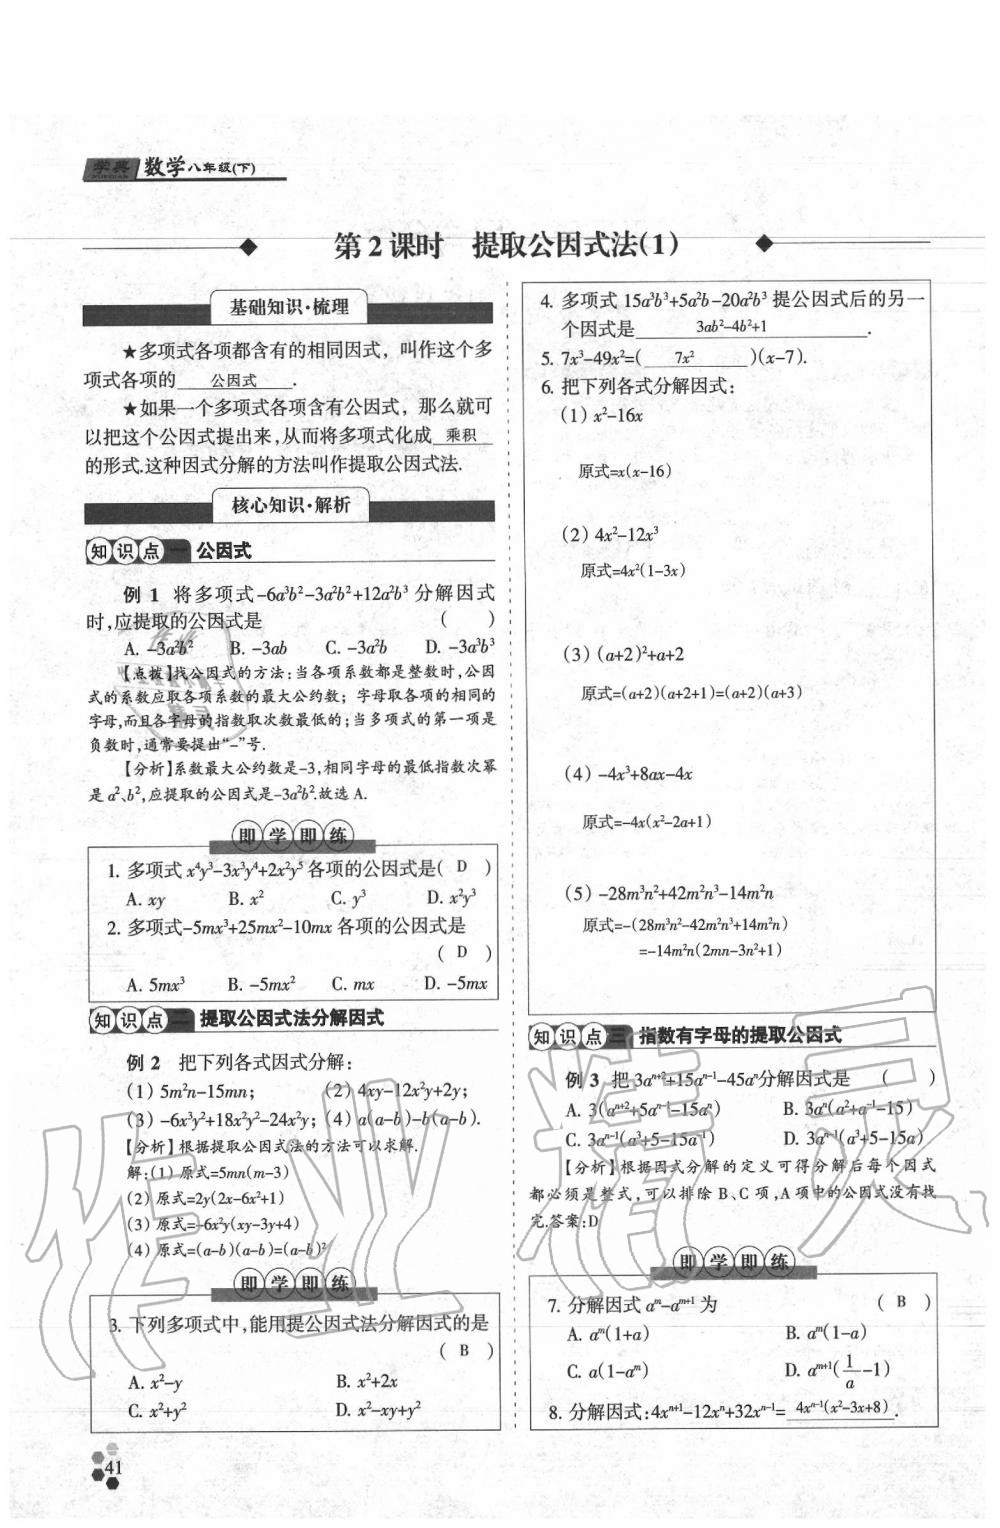 学典 数学八年级(下)
XUEDIAN
第2课时 提取公因式法(1)
基础知识·梳理
★多项式各项都含有的相同因式，叫作这个多
项式各项的 公因式 .
★如果一个多项式各项含有公因式，那么就可
以把这个公因式提出来,从而将多项式化成 乘积
的形式.这种因式分解的方法叫作提取公因式法.
核心知识·解析
知识点一 公因式
例 1 将多项式-6a³b²-3a²b²+12a²b³分解因式
时,应提取的公因式是 ( )
A. -3a²b² B. -3ab C. -3a²b D. -3a³b³
【点拨】找公因式的方法:当各项系数都是整数时,公因
式的系数应取各项系数的最大公约数；字母取各项的相同的
字母,而且各字母的指数取次数最低的;当多项式的第一项是
负数时,通常要提出“-”号.
【分析】系数最大公约数是-3,相同字母的最低指数次幂
是a²、b²,应提取的公因式是-3a²b².故选A.
即学即练
1. 多项式x⁴y³-3x³y⁴+2x²y⁵各项的公因式是( D )
A. xy B. x² C. y³ D. x²y³
2. 多项式-5mx³+25mx²-10mx各项的公因式是
( D )
A. 5mx³ B. -5mx² C. mx D. -5mx
知识点二 提取公因式法分解因式
例 2 把下列各式因式分解:
(1) 5m²n-15mn; (2) 4xy-12x²y+2y;
(3) -6x³y²+18x²y²-24x²y; (4) a(a-b)-b(a-b).
【分析】根据提取公因式法的方法可以求解.
解:(1) 原式=5mn(m-3)
(2) 原式=2y(2x-6x²+1)
(3) 原式=-6x²y(xy-3y+4)
(4) 原式=(a-b)(a-b)=(a-b)²
即学即练
3. 下列多项式中,能用提公因式法分解因式的是
( B )
A. x²-y B. x²+2x
C. x²+y² D. x²-xy+y²
41
4. 多项式15a³b³+5a²b-20a²b³提公因式后的另一
个因式是 3ab²-4b²+1 .
5. 7x³-49x²=( 7x² )(x-7).
6. 把下列各式分解因式:
(1) x²-16x
原式=x(x-16)
(2) 4x²-12x³
原式=4x²(1-3x)
(3) (a+2)²+a+2
原式=(a+2)(a+2+1)=(a+2)(a+3)
(4) -4x³+8ax-4x
原式=-4x(x²-2a+1)
(5) -28m³n²+42m²n³-14m²n
原式=-(28m³n²-42m²n³+14m²n)
=-14m²n(2mn-3n²+1)
知识点三 指数有字母的提取公因式
例 3 把3aⁿ⁺²+15aⁿ⁻¹-45aⁿ分解因式是 ( )
A. 3(aⁿ⁺²+5aⁿ⁻¹-15aⁿ) B. 3aⁿ(a²+a⁻¹-15)
C. 3aⁿ⁻¹(a³+5-15a⁻¹) D. 3aⁿ⁻¹(a³+5-15a)
【分析】根据因式分解的定义可得分解后每个因式
都必须是整式,可以排除B、C项,A项中的公因式没有找
完.答案:D
即学即练
7. 分解因式aᵐ-aᵐ⁺¹为 ( B )
A. aᵐ(1+a) B. aᵐ(1-a)
C. a(1-aᵐ) D. aᵐ⁺¹(1/a-1)
8. 分解因式:4xⁿ⁺¹-12xⁿ+32xⁿ⁻¹= 4xⁿ⁻¹(x²-3x+8) .
作业精灵